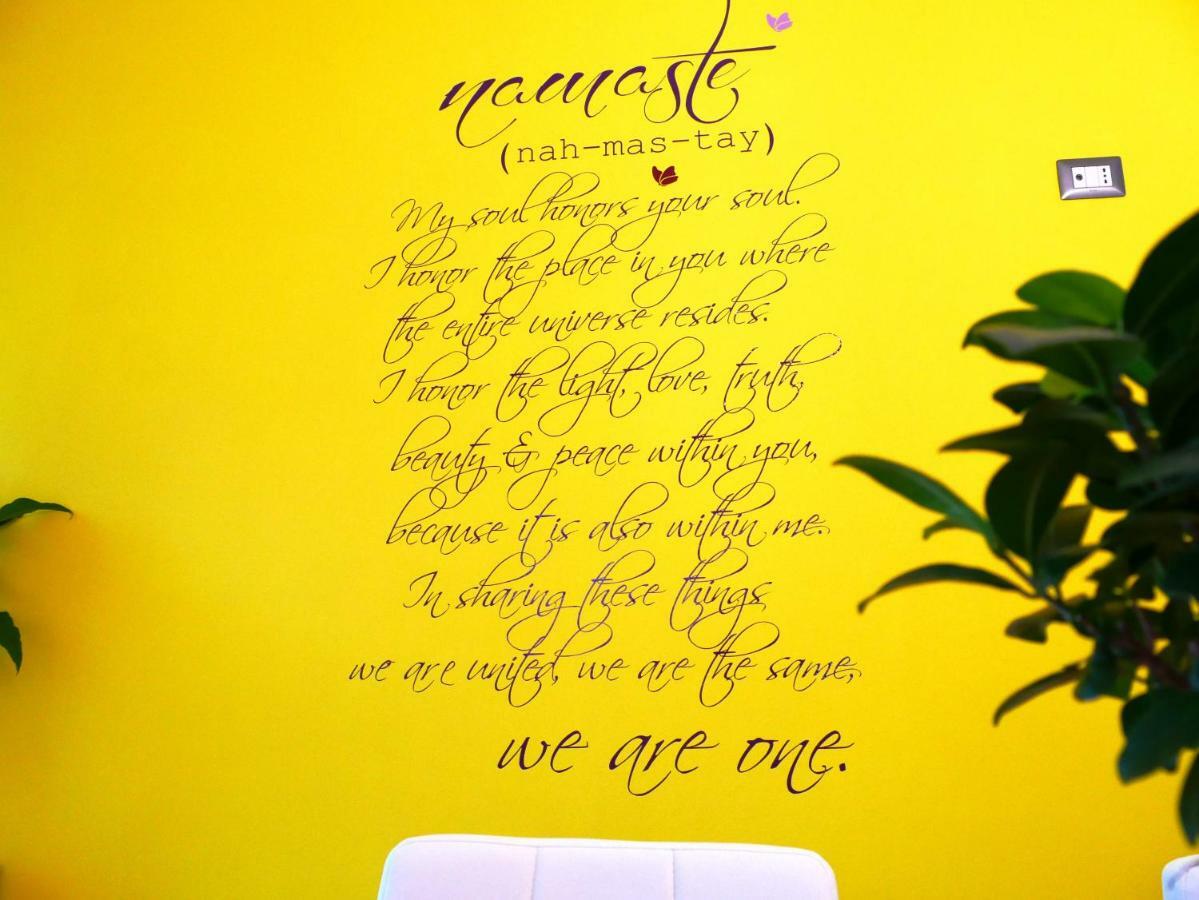 namaste
(nah-mas-tay)
My soul honors your soul.
I honor the place in you where
the entire universe resides.
I honor the light, love, truth,
beauty & peace within you,
because it is also within me.
In sharing these things
we are united, we are the same,
we are one.